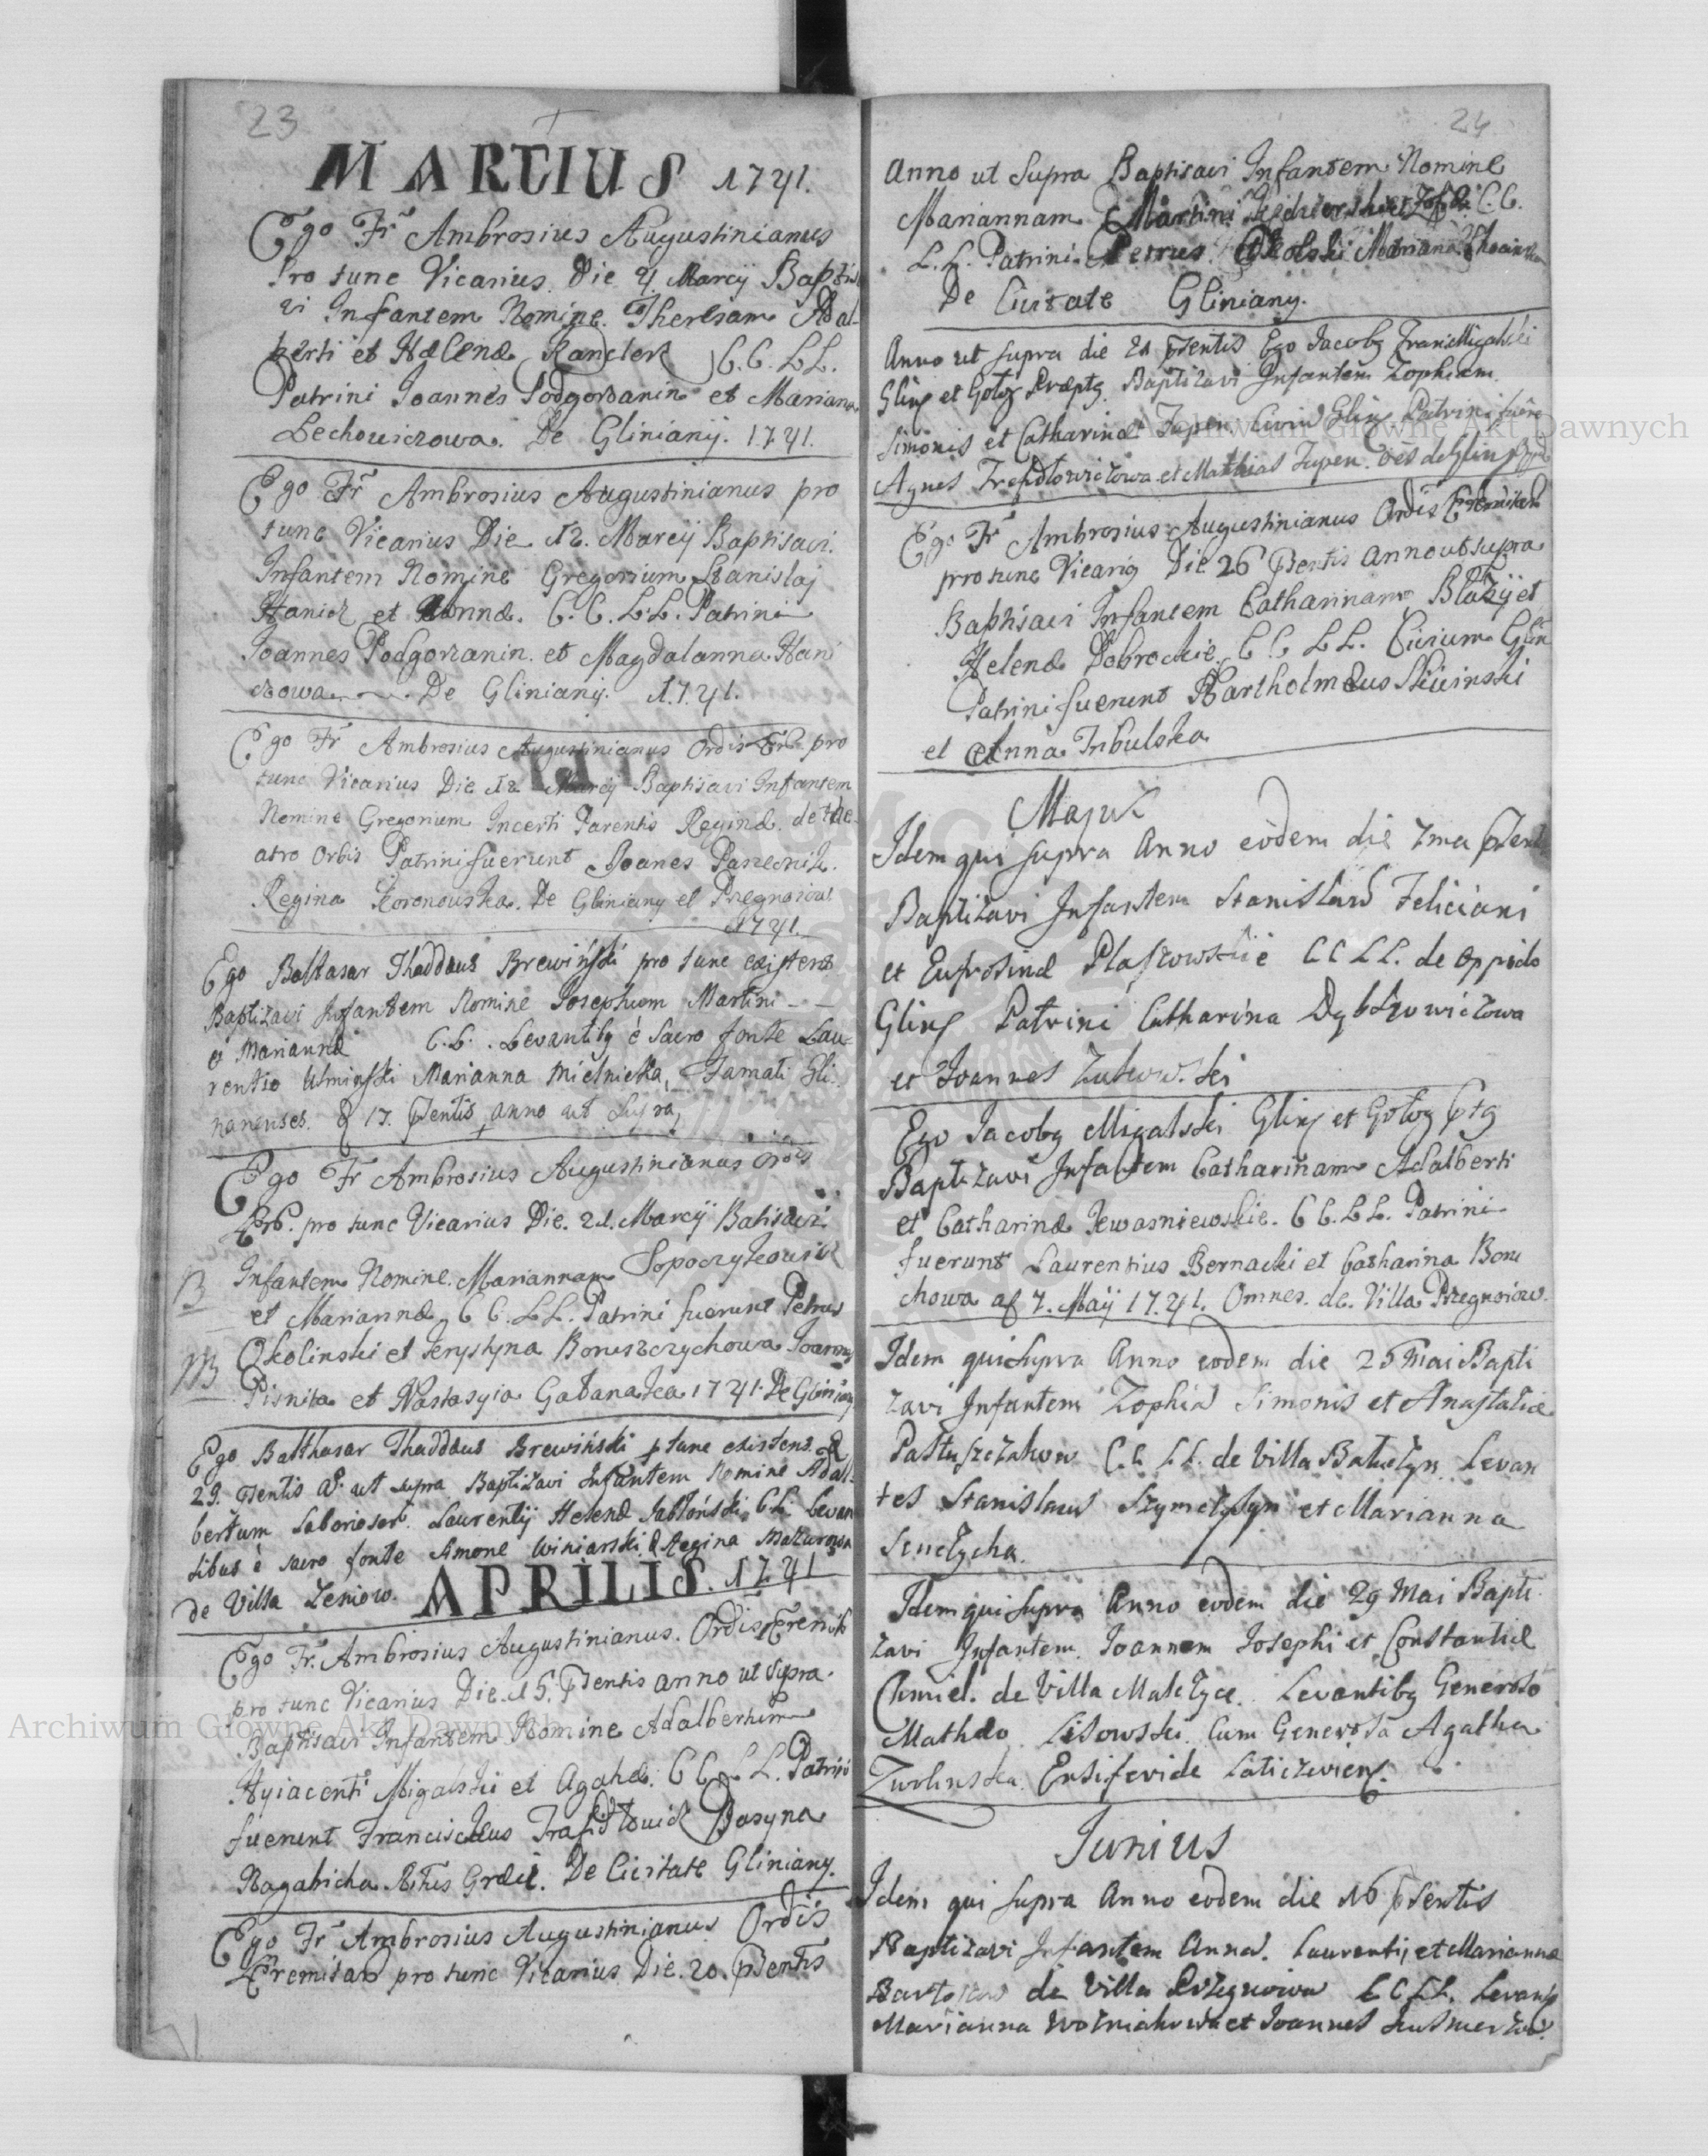 23
MARTIUS 1741.
Ego Fr Ambrosius Augustinianus
Pro tunc Vicarius Die 4 Marcij Baptisa
vi Infantem Nomine Theresam Adal-
berti et Helenæ Kancler C.C. L.L.
Patrini Joannes Podgorzanin et Mariana
Lechowiczowa. De Glinianij. 1741.
Ego Fr Ambrosius Augustinianus pro
tunc Vicarius Die 12. Marcij Baptisavi
Infantem Nomine Gregorium Stanislaj
et Annæ. C.C. L.L. Patrini
Joannes Podgorzanin et Magdalanna Han
czowa De Glinianij. 1741.
Ego Fr Ambrosius Augustinianus Ordis pro
tunc Vicarius Die 12 Marcij Baptisavi Infantem
Nomine Gregorium Incerti Parentis Reginæ de the-
atro Orbis Patrini fuerunt Joanes
Regina Koronowska. De Gliniany et Pregnoiow
1741.
Ego Baltasar Thaddæus Brewiński pro tunc existens
Baptizavi Infantem Nomine Josephum Martini - -
et Mariannæ C.L. Levantibg è Sacro fonte Lau-
rentio Ulmiński Marianna Mielnicka, Famati Gli-
nanenses. d 17. Psentis anno ut Supra
Ego Fr Ambrosius Augustinianus Ordis
pro tunc Vicarius Die. 21. Marcij Batisavi
Infantem Nomine. Mariannam
et Mariannæ C C. L L. Patrini fuerunt Petrus
Okolinski et Krystyna Boruszczychowa Joannes
Pisnita et Nastasyia 1741. De Gliniany
Ego Balthasar Thaddæus Brewiński p tunc existens d
29. Psentis A. ut supra Baptizavi Infantem Nomine Adal-
bertum Laborioser. Laurentij Helenæ Jabłoński C.L. Levan
tibus è sacro fonte Simone Winiarski & Regina Mazurowa
de Villa Zeniow.
APRILIS. 1741
Ego Fr. Ambrosius Augustinianus. Ordis Eremit
pro tunc Vicarius Die. 15. Psentis anno ut Supra.
Baptisavi Infantem Nomine Adalbertum
Hyiacenti Migalski et Agathæ. C C. L L. Patrini
fuerunt Franciscus
Ritus Græci. De Civitate Gliniany.
Ego Fr Ambrosius Augustinianus Ordis
Eremitar pro tunc Vicarius Die. 20. Psentis
24
Anno ut Supra Baptisavi Infantem Nomine
Mariannam Martini C.C.
L.L. Patrini Petrus Okolski Mariana
De Civitate Gliniany.
Anno ut supra die 21 Psentis Ego Jacobg Fran: Migalski
Gling et Gołog Præptg Baptizavi Infantem Zophiam
Simonis et Catharinæ Zupen Civiu Gling Patrini fuere
Agnes et Mathias Zupen. oes de Glin
Ego Fr Ambrosius Augustinianus Ordis Eremitar
pro tunc Vicarig Die 26 Psentis anno ut supra
Baptisavi Infantem Catharinam Blazij et
Helenæ Dobrockie C C L L. Civium Glin
Patrini fuerunt Bartholmæus Skiwinski
et Anna Tribulska
Majus
Idem qui supra Anno eodem die 7ma Psent
Baptizavi Infantem Stanislaũ Feliciani
et Euprosinæ C C L L. de oppido
Gling Patrini Catharina
et Joannes Zukow.ski
Ego Jacobg Migalski Gling et Gołog Ptg
Baptizavi Infantem Catharinam Adalberti
et Catharinæ Kwasniewskie. C C. L L. Patrini
fuerunt Laurentius Bernacki et Catharina Boru
chowa 7. Maij 1741. Omnes. de Villa Przegnoiow
Idem qui Supra Anno eodem die 25 Mai Bapti
zavi Infantem Zophiã Simonis et Anastatiæ
Pastuszczakow C C L L. de Villa Levan
tes Stanislaus et Marianna
Idem qui supra Anno eodem die 29 Mai Bapti
zavi Infantem. Joannem Josephi et Constantiæ
Chmiel. de Villa Malczyce. Levantibg Generoso
Mathæo Lisowski cum Generosa Agatha
Zwolinska. Ensiferide Laticzevien.
Junius
Idem qui supra Anno eodem die 16 Psentis
Baptizavi Infantem Annã. Laurentij et Mariannæ
de Villa Przegnoiow C C L L. Levans
Marianna Wozniakowa et Joannes
Archiwum Główne Akt Dawnych
Archiwum Główne Akt Dawnych